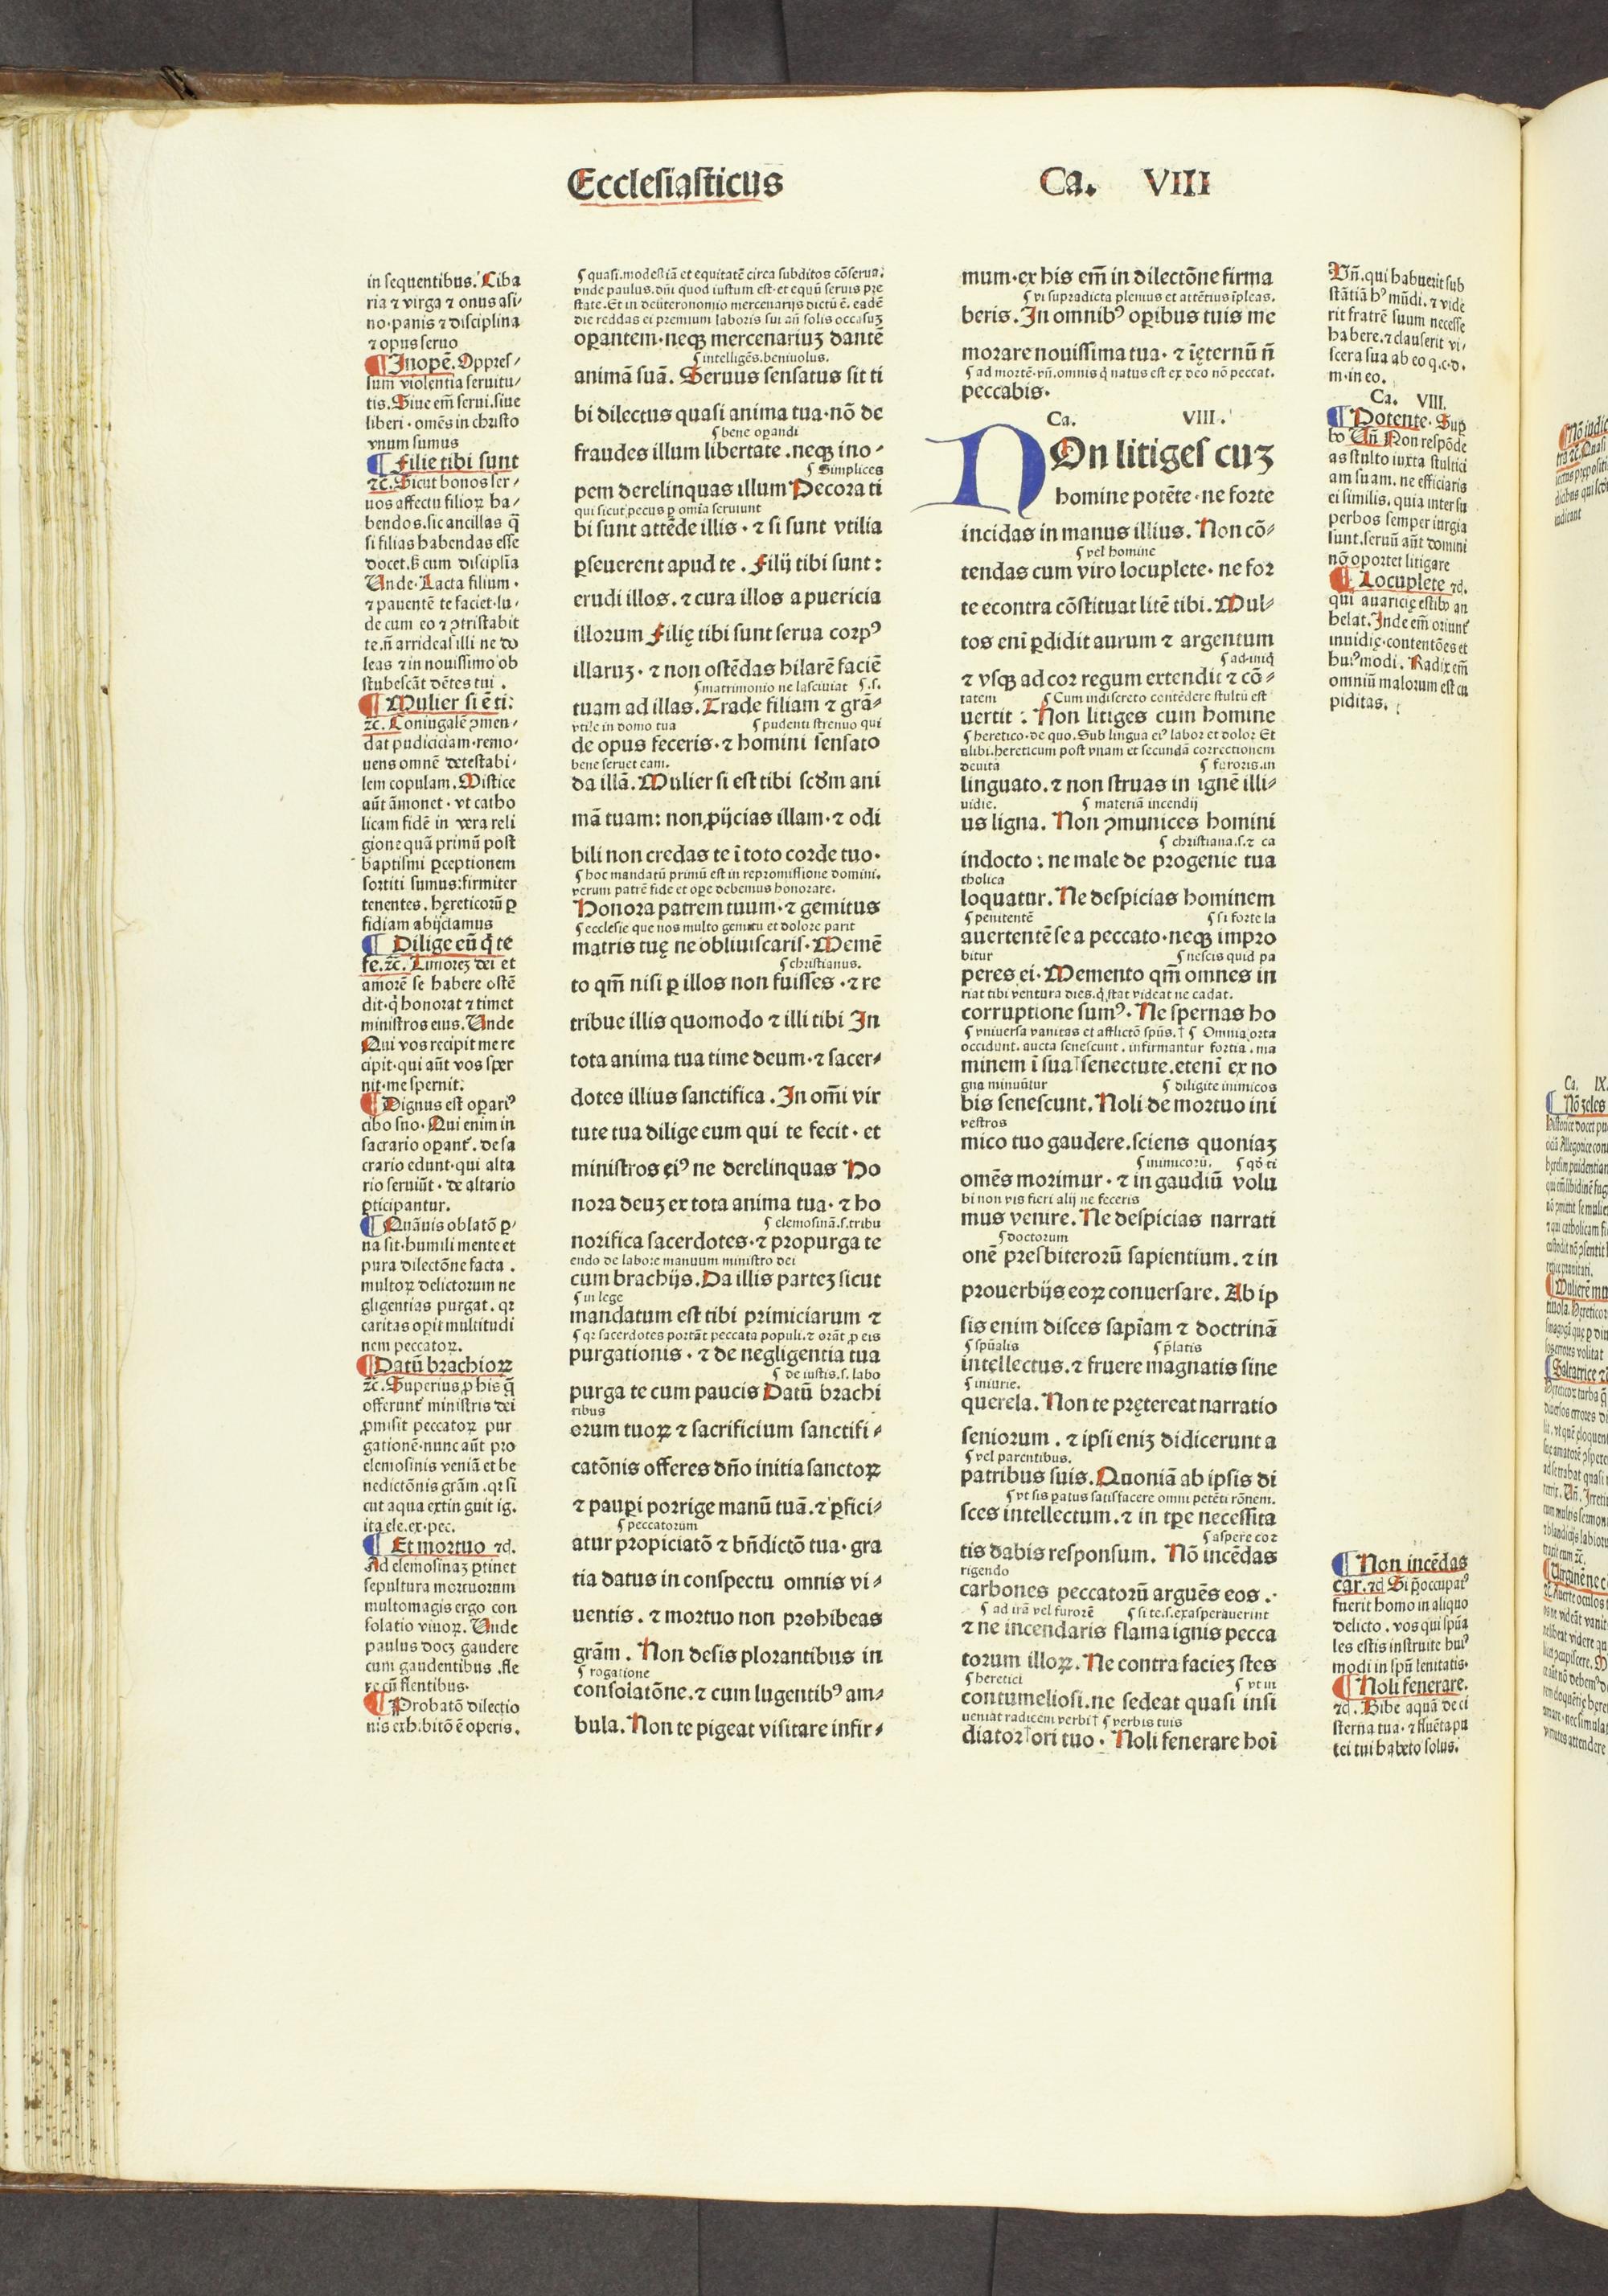 Ecclesiasticus
Ca. VIII
in sequentibus. Ciba
ria ⁊ virga ⁊ onus asi⸗
no·panis ⁊ disciplina
⁊ opus seruo
¶ Inopē. Oppres⸗
sum violentia seruitu⸗
tis. Siue em̄ serui.siue
liberi·omēs in christo
vnum sumus
¶ Filie tibi sunt
⁊c. Sicut bonos ser⸗
uos affectu filioꝝ ha⸗
bendos.sic ancillas q̄
si filias habendas esse
docet.ſꝫ cum disciplīa
Unde·Lacta filium·
⁊ pauentē te faciet·lu⸗
de cum eo ⁊ ꝯtristabit
te.n̄ arrideas illi ne do
leas ⁊ in nouissimo ob
stubescāt dētes tui.
¶ Mulier si ē ti:
⁊c. Coniugalē ꝯmen⸗
dat pudiciciam·remo⸗
uens omnē detestabi⸗
lem copulam. Mistice
aūt āmonet·vt catho
licam fidē in vera reli
gione quā primū post
baptismi ꝑceptionem
sortiti sumus:firmiter
tenentes. hęreticorū ꝑ
fidiam abijciamus
¶ Dilige eū q̇ te
fe.⁊c. Timoreꝫ dei et
amorē se habere ostē
dit·q̇ honorat ⁊ timet
ministros eius. Unde
Qui vos recipit me re
cipit·qui aūt vos sper
nit·me spernit.
¶ Dignus est oꝑariꝰ
cibo suo. Qui enim in
sacrario oꝑant᷑. de sa
crario edunt·qui alta
rio seruiūt·de altario
ꝑticipantur.
¶ Quāuis oblatō ꝑ⸗
na sit·humili mente et
pura dilectōne facta.
multoꝝ delictorum ne
gligentias purgat.qꝛ
caritas oꝑit multitudi
nem peccatoꝝ.
¶ Datū brachioꝝ
⁊c. Superius ꝓ his q̄
offerunt᷑ ministris dei
ꝓmisit peccatoꝝ pur
gationē·nunc aūt pro
elemosinis veniā et be
nedictōnis grām.qꝛ si
cut aqua extinguit ig.
ita ele.ex·pec.
¶ Et mortuo ⁊cł.
Ad elemosinaꝫ ꝑtinet
sepultura mortuorum
multomagis ergo con
solatio viuoꝝ. Unde
paulus docꝫ gaudere
cum gaudentibus.fle
re cū flentibus·
¶ Probatō dilectio
nis exhibitō ē operis.
¶ quasi.modestiā et equitatē circa subditos cōserua.
vnde paulus.dn̄i quod iustum est·et equū seruis pre
state. Et in deuteronomio mercenarijs dictū ē. eadē
die reddas ei premium laboris sui an̄ solis occasuꝫ
oꝑantem·neqꝫ mercenariuꝫ dantē
¶ intelligēs.beniuolus.
animā suā. Seruus sensatus sit ti
bi dilectus quasi anima tua·nō de
¶ bene oꝑandi
fraudes illum libertate.neqꝫ ino⸗
¶ Simplices
pem derelinquas illum Pecora ti
qui sicut pecus ꝑ omīa seruiunt
bi sunt attēde illis·⁊ si sunt vtilia
ꝑseuerent apud te. Filij tibi sunt:
erudi illos.⁊ cura illos a puericia
illorum Filię tibi sunt serua corpꝰ
illaruꝫ·⁊ non ostēdas hilarē faciē
¶ matrimonio ne lasciuiat ¶.s.
tuam ad illas. Trade filiam ⁊ grā⸗
vtile in domo tua ¶ pudenti strenuo qui
de opus feceris·⁊ homini sensato
bene seruet eam.
da illā. Mulier si est tibi scd'm ani
mā tuam: non ꝓijcias illam·⁊ odi
bili non credas te ī toto corde tuo·
¶ hoc mandatū primū est in repromissione domini.
verum patrē fide et oꝑe debemus honorare.
Honora patrem tuum·⁊ gemitus
¶ ecclesie que nos multo gemitu et dolore parit
matris tuę ne obliuiscaris·Memē
¶ christianus.
to qm̄ nisi ꝑ illos non fuisses·⁊ re
tribue illis quomodo ⁊ illi tibi In
tota anima tua time deum·⁊ sacer⸗
dotes illius sanctifica. In om̄i vir
tute tua dilige eum qui te fecit·et
ministros eiꝰ ne derelinquas Ho
nora deuꝫ ex tota anima tua·⁊ ho
¶ elemosinā.s.tribu
norifica sacerdotes·⁊ propurga te
endo de labore manuum ministro dei
cum brachijs. Da illis parteꝫ sicut
¶ in lege
mandatum est tibi primiciarum ⁊
¶ qꝛ sacerdotes portāt peccata populi.⁊ orāt ꝓ eis
purgationis·⁊ de negligentia tua
¶ de iustis.s.labo
purga te cum paucis Datū brachi
ribus
orum tuoꝝ ⁊ sacrificium sanctifi⸗
catōnis offeres dn̄o initia sanctoꝝ
⁊ pauꝑi porrige manū tuā.⁊ ꝑfici⸗
¶ peccatorum
atur propiciatō ⁊ bn̄dictō tua·gra
tia datus in conspectu omnis vi⸗
uentis.⁊ mortuo non prohibeas
grām. Non desis plorantibus in
¶ rogatione
consolatōne.⁊ cum lugentibꝰ am⸗
bula. Non te pigeat visitare infir⸗
mum·ex his em̄ in dilectōne firma
¶ vt supradicta plenius et attētius īpleas.
beris. In omnibꝰ oꝑibus tuis me
morare nouissima tua·⁊ ī ęternū n̄
¶ ad mortē·vn̄.omnis q̇ natus est ex deo nō peccat.
peccabis·
Ca. VIII.
NOn litiges cuꝫ
homine potēte·ne forte
incidas in manus illius. Non cō⸗
¶ vel homine
tendas cum viro locuplete·ne for
te econtra cōstituat litē tibi. Mul⸗
tos eni ꝑdidit aurum ⁊ argentum
¶ ad·iniq̇
⁊ vsqꝫ ad cor regum extendit ⁊ cō⸗
tatem ¶ Cum indiscreto contēdere stultū est
uertit: Non litiges cum homine
¶ heretico·de quo. Sub lingua eiꝰ labor et dolor Et
alibi.hereticum post vnam et secundā correctionem
deuita ¶ furoris.in
linguato.⁊ non struas in ignē illi⸗
uidie. ¶ materiā incendij
us ligna. Non ꝯmunices homini
¶ christiana.s.⁊ ca
indocto: ne male de progenie tua
tholica
loquatur. Ne despicias hominem
¶ penitentē ¶ si forte la
auertentē se a peccato·neqꝫ impro
bitur ¶ nescis quid pa
peres ei·Memento qm̄ omnes in
riat tibi ventura dies.q̇ stat videat ne cadat.
corruptione sumꝰ. Ne spernas ho
¶ vniuersa vanitas et afflictō spūs.† ¶ Omnia orta
occidunt.aucta senescunt.infirmantur fortia.ma
minem ī sua†senectute.etenī ex no
gna minuūtur ¶ diligite inimicos
bis senescunt. Noli de mortuo ini
vestros
mico tuo gaudere.sciens quoniaꝫ
¶ inimicorū. ¶ qd̓ ti
omēs morimur·⁊ in gaudiū volu
bi non vis fieri alij ne feceris
mus venire. Ne despicias narrati
¶ doctorum
onē presbiterorū sapientium.⁊ in
prouerbijs eoꝝ conuersare. Ab ip
sis enim disces sapīam ⁊ doctrinā
¶ spūalis ¶ p̄latis
intellectus.⁊ fruere magnatis sine
¶ iniurie.
querela. Non te prętereat narratio
seniorum.⁊ ipsi eniꝫ didicerunt a
¶ vel parentibus.
patribus suis. Quoniā ab ipsis di
¶ vt sis ꝑatus satisfacere omni petēti rōnem.
sces intellectum.⁊ in tꝑe necessita
¶ aspere cor
tis dabis responsum. Nō incēdas
rigendo
carbones peccatorū arguēs eos.·
¶ ad irā vel furorē ¶ si te.s.exasperauerint
⁊ ne incendaris flama ignis pecca
torum illoꝝ. Ne contra facieꝫ stes
¶ heretici ¶ vt in
contumeliosi.ne sedeat quasi insi
ueniat radicem verbi† ¶ verbis tuis
diator†ori tuo. Noli fenerare hoī
Vn̄.qui habuerit sub
stātiā hꝰ mūdi.⁊ vide
rit fratrē suum necesse
habere.⁊ clauserit vi⸗
scera sua ab eo q.c.d.
m·in eo.
Ca. VIII.
¶ Potente. Suꝑ
bo Un̄. Non respōde
as stulto iuxta stultici
am suam.ne efficiaris
ei similis.quia inter su
perbos semper iurgia
sunt.seruū aūt domini
nō oportet litigare
¶ Locuplete ⁊cł.
qui auaricię estibꝰ an
helat. Inde em̄ oriunt᷑
inuidię·contentōes et
huiꝰmodi. Radix em̄
omniū malorum est cu
piditas.
¶ Non incēdas
car.⁊cł Si p̄occupatꝰ
fuerit homo in aliquo
delicto.vos qui spūa
les estis instruite huiꝰ
modi in spū lenitatis·
¶ Noli fenerare.
⁊cł. Bibe aquā de ci
sterna tua·⁊ fluēta pu
tei tui habeto solus.
Ca. IX.